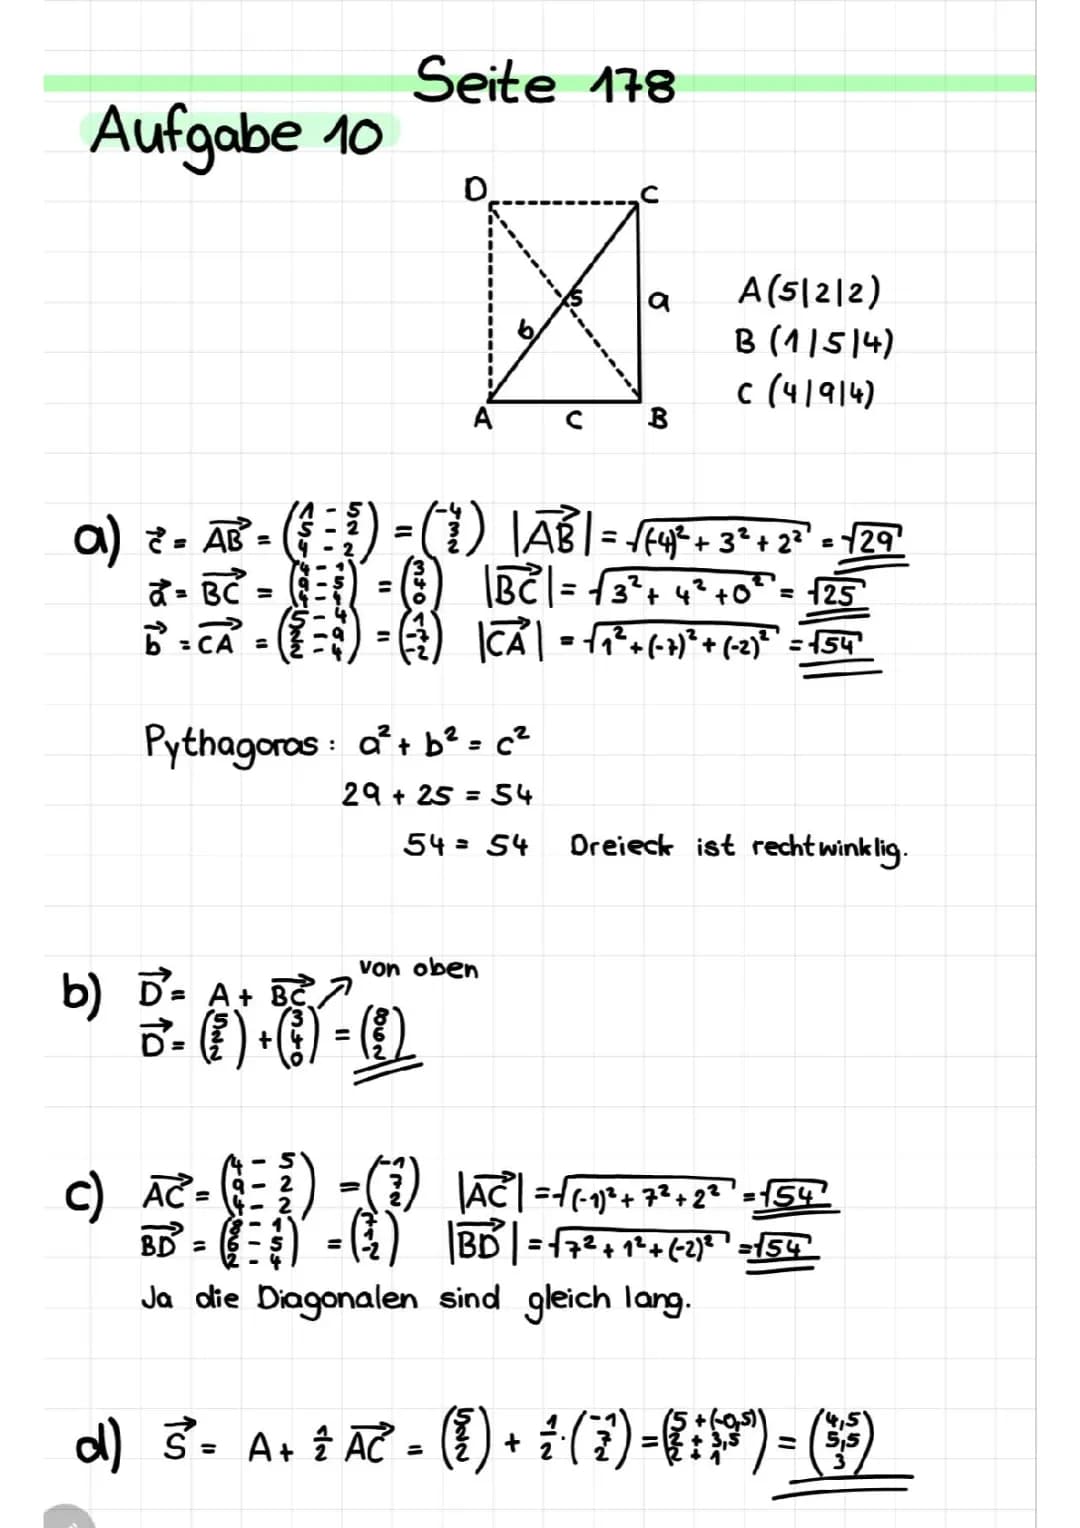 Seite 178
Aufgabe 10
D C
S
b a
A C B
A(5|2|2)
B (1|5|4)
C (4|9|4)
a) c⃗ = AB⃗ = (1 - 5; 5 - 2; 4 - 2) = (-4; 3; 2) |AB⃗| = √((-4)² + 3² + 2²) = √29
a⃗ = BC⃗ = (4 - 1; 9 - 5; 4 - 4) = (3; 4; 0) |BC⃗| = √(3² + 4² + 0²) = √25
b⃗ = CA⃗ = (5 - 4; 2 - 9; 2 - 4) = (1; -7; -2) |CA⃗| = √(1² + (-7)² + (-2)²) = √54
Pythagoras : a² + b² = c²
29 + 25 = 54
54 = 54 Dreieck ist rechtwinklig.
b) D⃗ = A + BC⃗ ↗ von oben
D⃗ = (5; 2; 2) + (3; 4; 0) = (8; 6; 2)
c) AC⃗ = (4 - 5; 9 - 2; 4 - 2) = (-1; 7; 2) |AC⃗| = √((-1)² + 7² + 2²) = √54
BD⃗ = (8 - 1; 6 - 5; 2 - 4) = (7; 1; -2) |BD⃗| = √(7² + 1² + (-2)²) = √54
Ja die Diagonalen sind gleich lang.
d) S⃗ = A + 1/2 AC⃗ = (5; 2; 2) + 1/2 · (-1; 7; 2) = (5 + (-0,5); 2 + 3,5; 2 + 1) = (4,5; 5,5; 3)